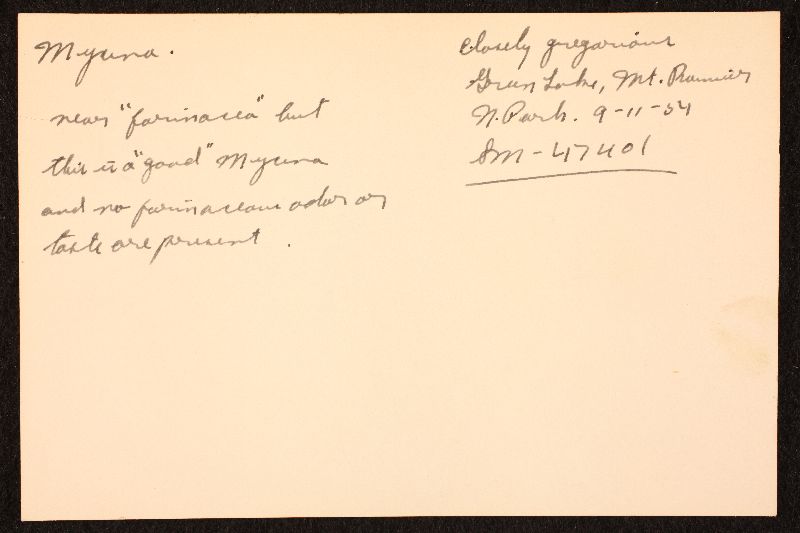 Mycena.
near "farinacea" but
this is a "good" Mycena
and no farinaceous odor or
taste are present.
Closely gregarious
Green Lake, Mt. Rainier
N. Park. 9-11-54
Sm-47401